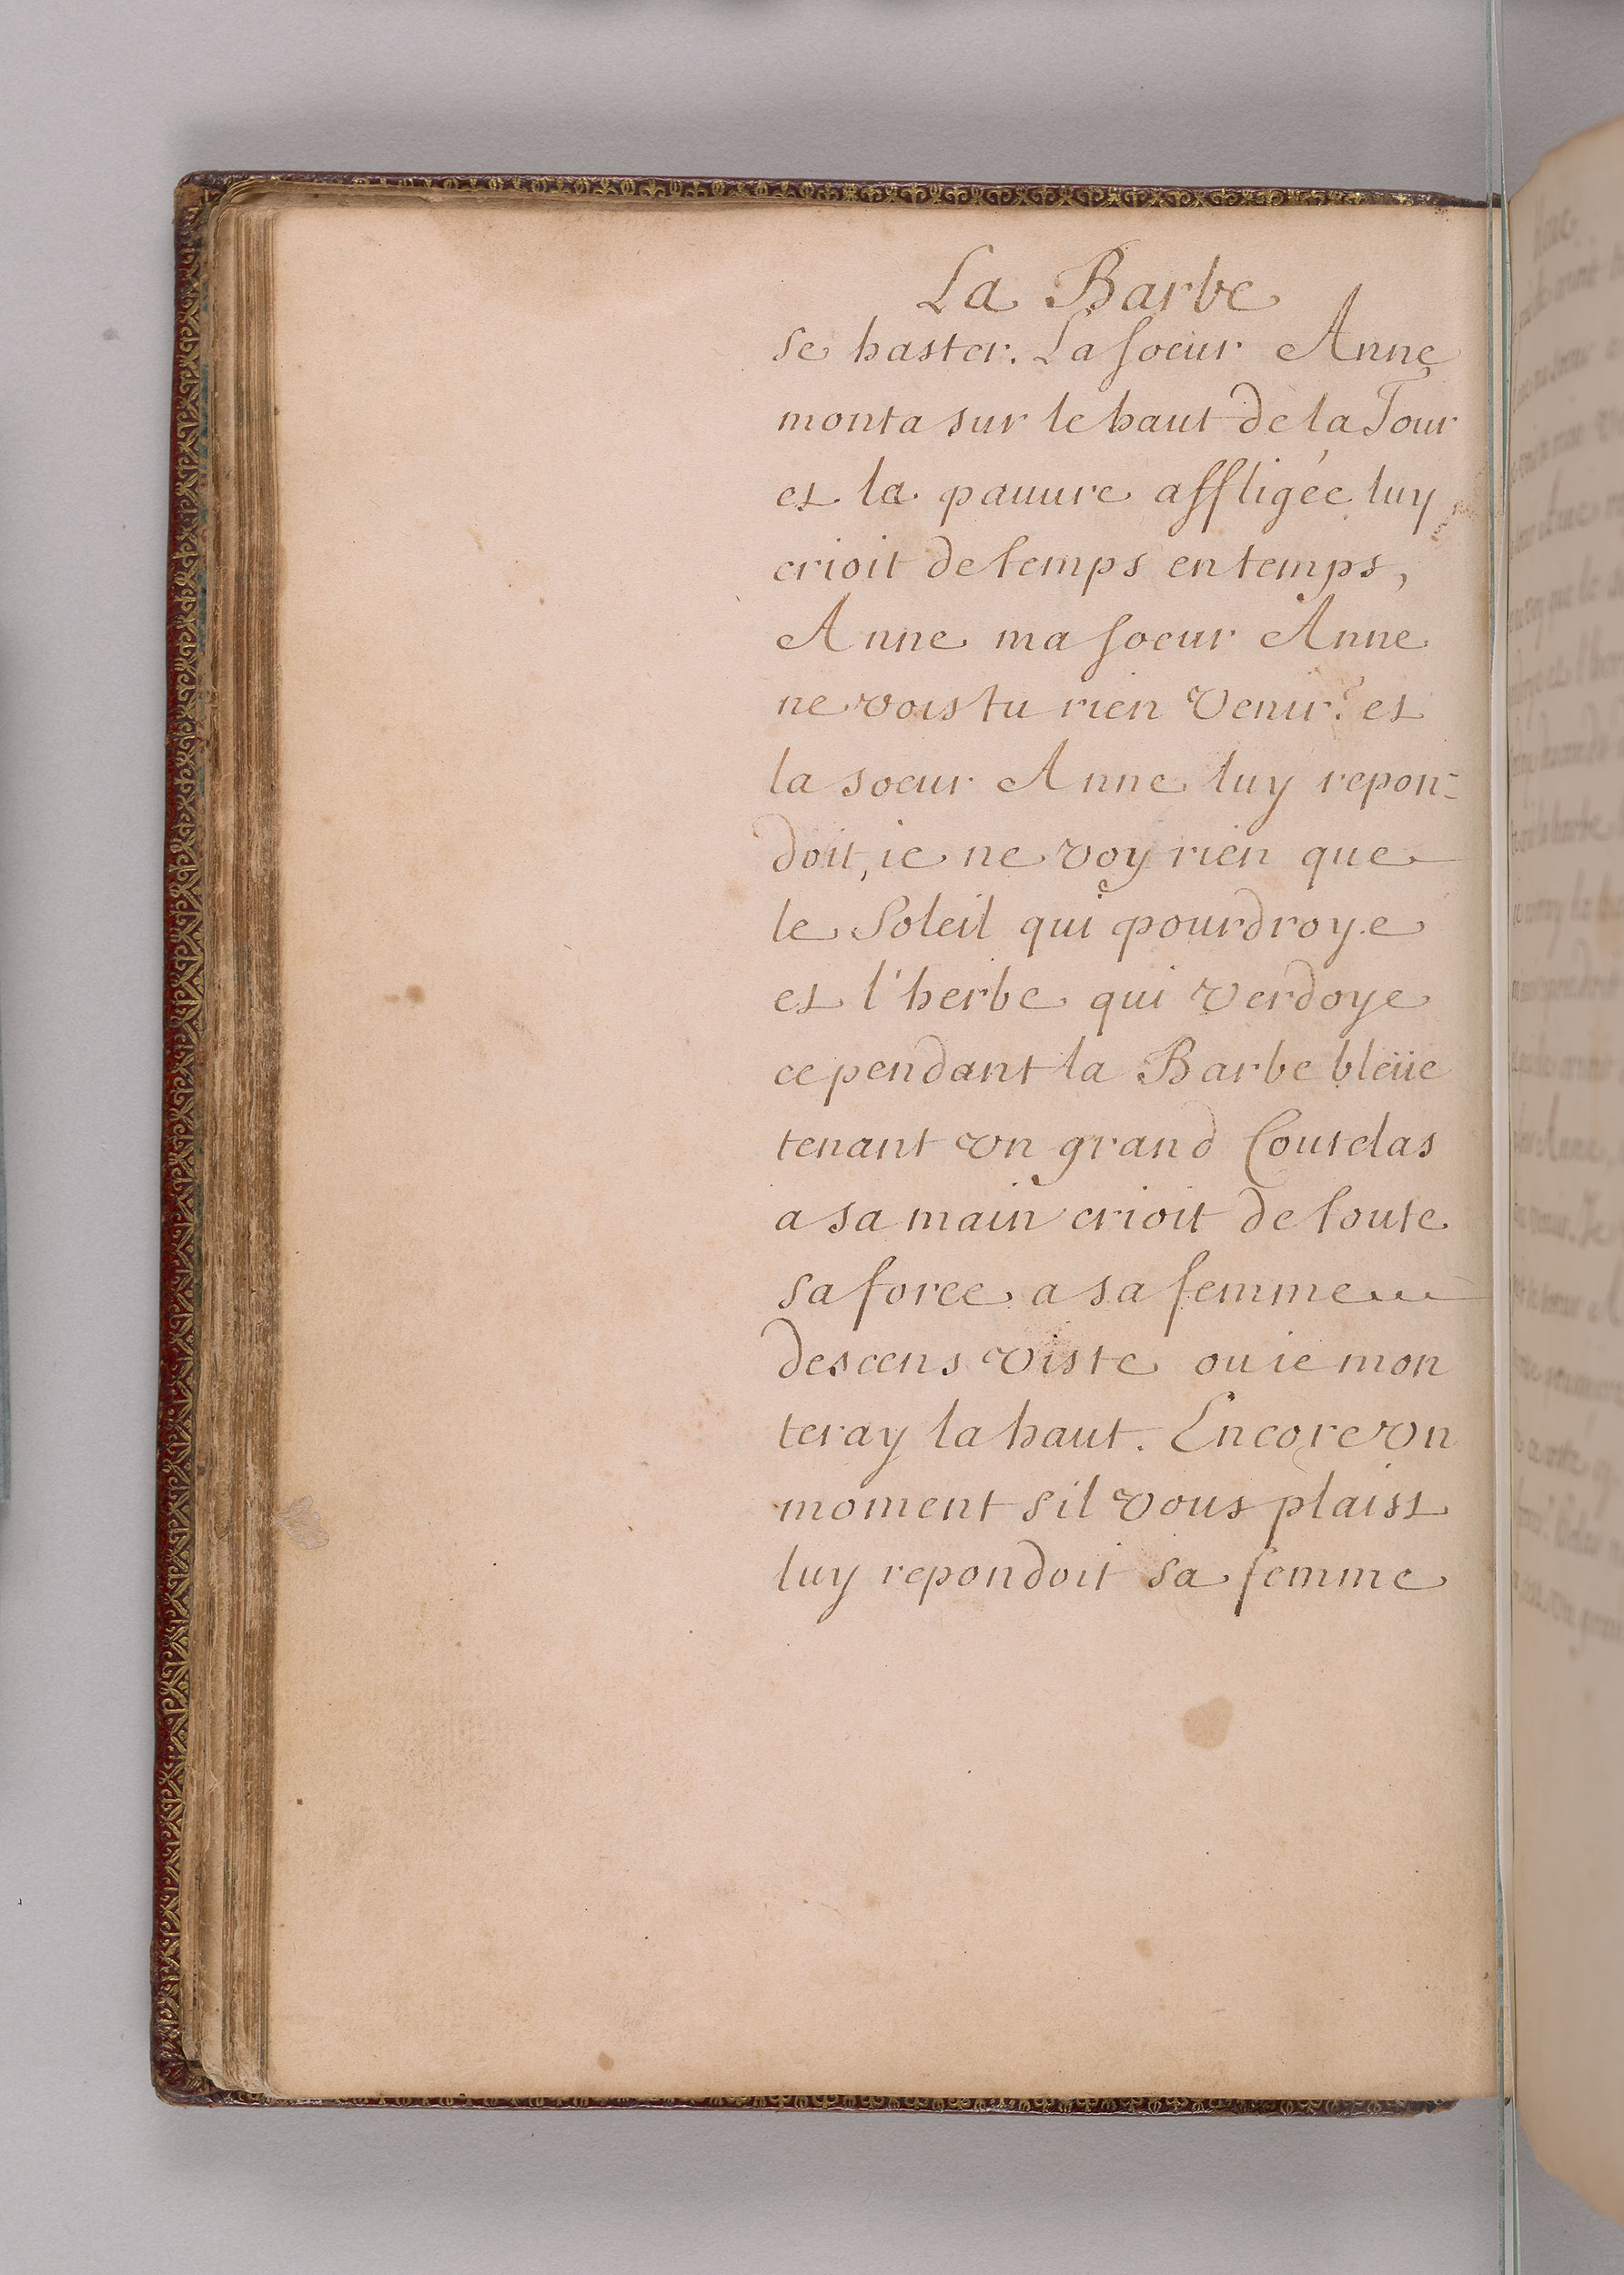 La Barbe
se haster. La soeur Anne
monta sur le haut de la Tour
et la pauure affligée luy
crioit de temps en temps,
Anne ma soeur Anne
ne vois tu rien venir? et
la soeur Anne luy repon-
doit, ie ne voy rien que
le Soleil qui pourdroye
et l'herbe qui verdoye
cependant la Barbe bleüe
tenant vn grand Coutelas
a sa main crioit de toute
sa force a sa femme
descens viste ou ie mon
teray la haut. Encore vn
moment s'il vous plaist
luy repondoit sa femme